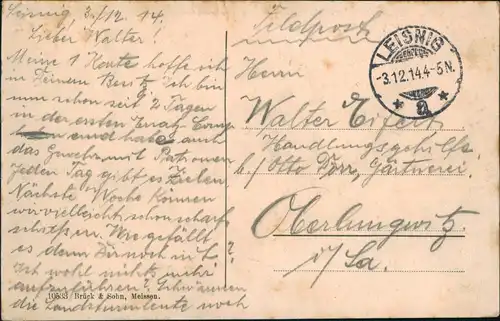 Leisnig, 3./12. 14.
Lieber Walter!
Meine 1 Karte hoffe ich
in Deinem Besitz. Ich bin
nun schon seit 2 Tagen
in der ersten Comp
und habe auch
das Gewehr mit Patronen
Jeden Tag gibt es Zielen
Nächste Woche können
wir vielleicht schon scharf
schießen. Wie gefällt
es denn Dir noch in L?
Ist wohl nichts mehr
aufzuführen? Schwärmen
die Landsturmleute noch
10583 Brück & Sohn, Meissen.
Feldpost
LEISNIG
-3.12.14.4-5N.
* a *
Herrn
Walter
Handlungsgehilfe
b./ Otto Gärtnerei
Oberlungwitz
i/Sa.